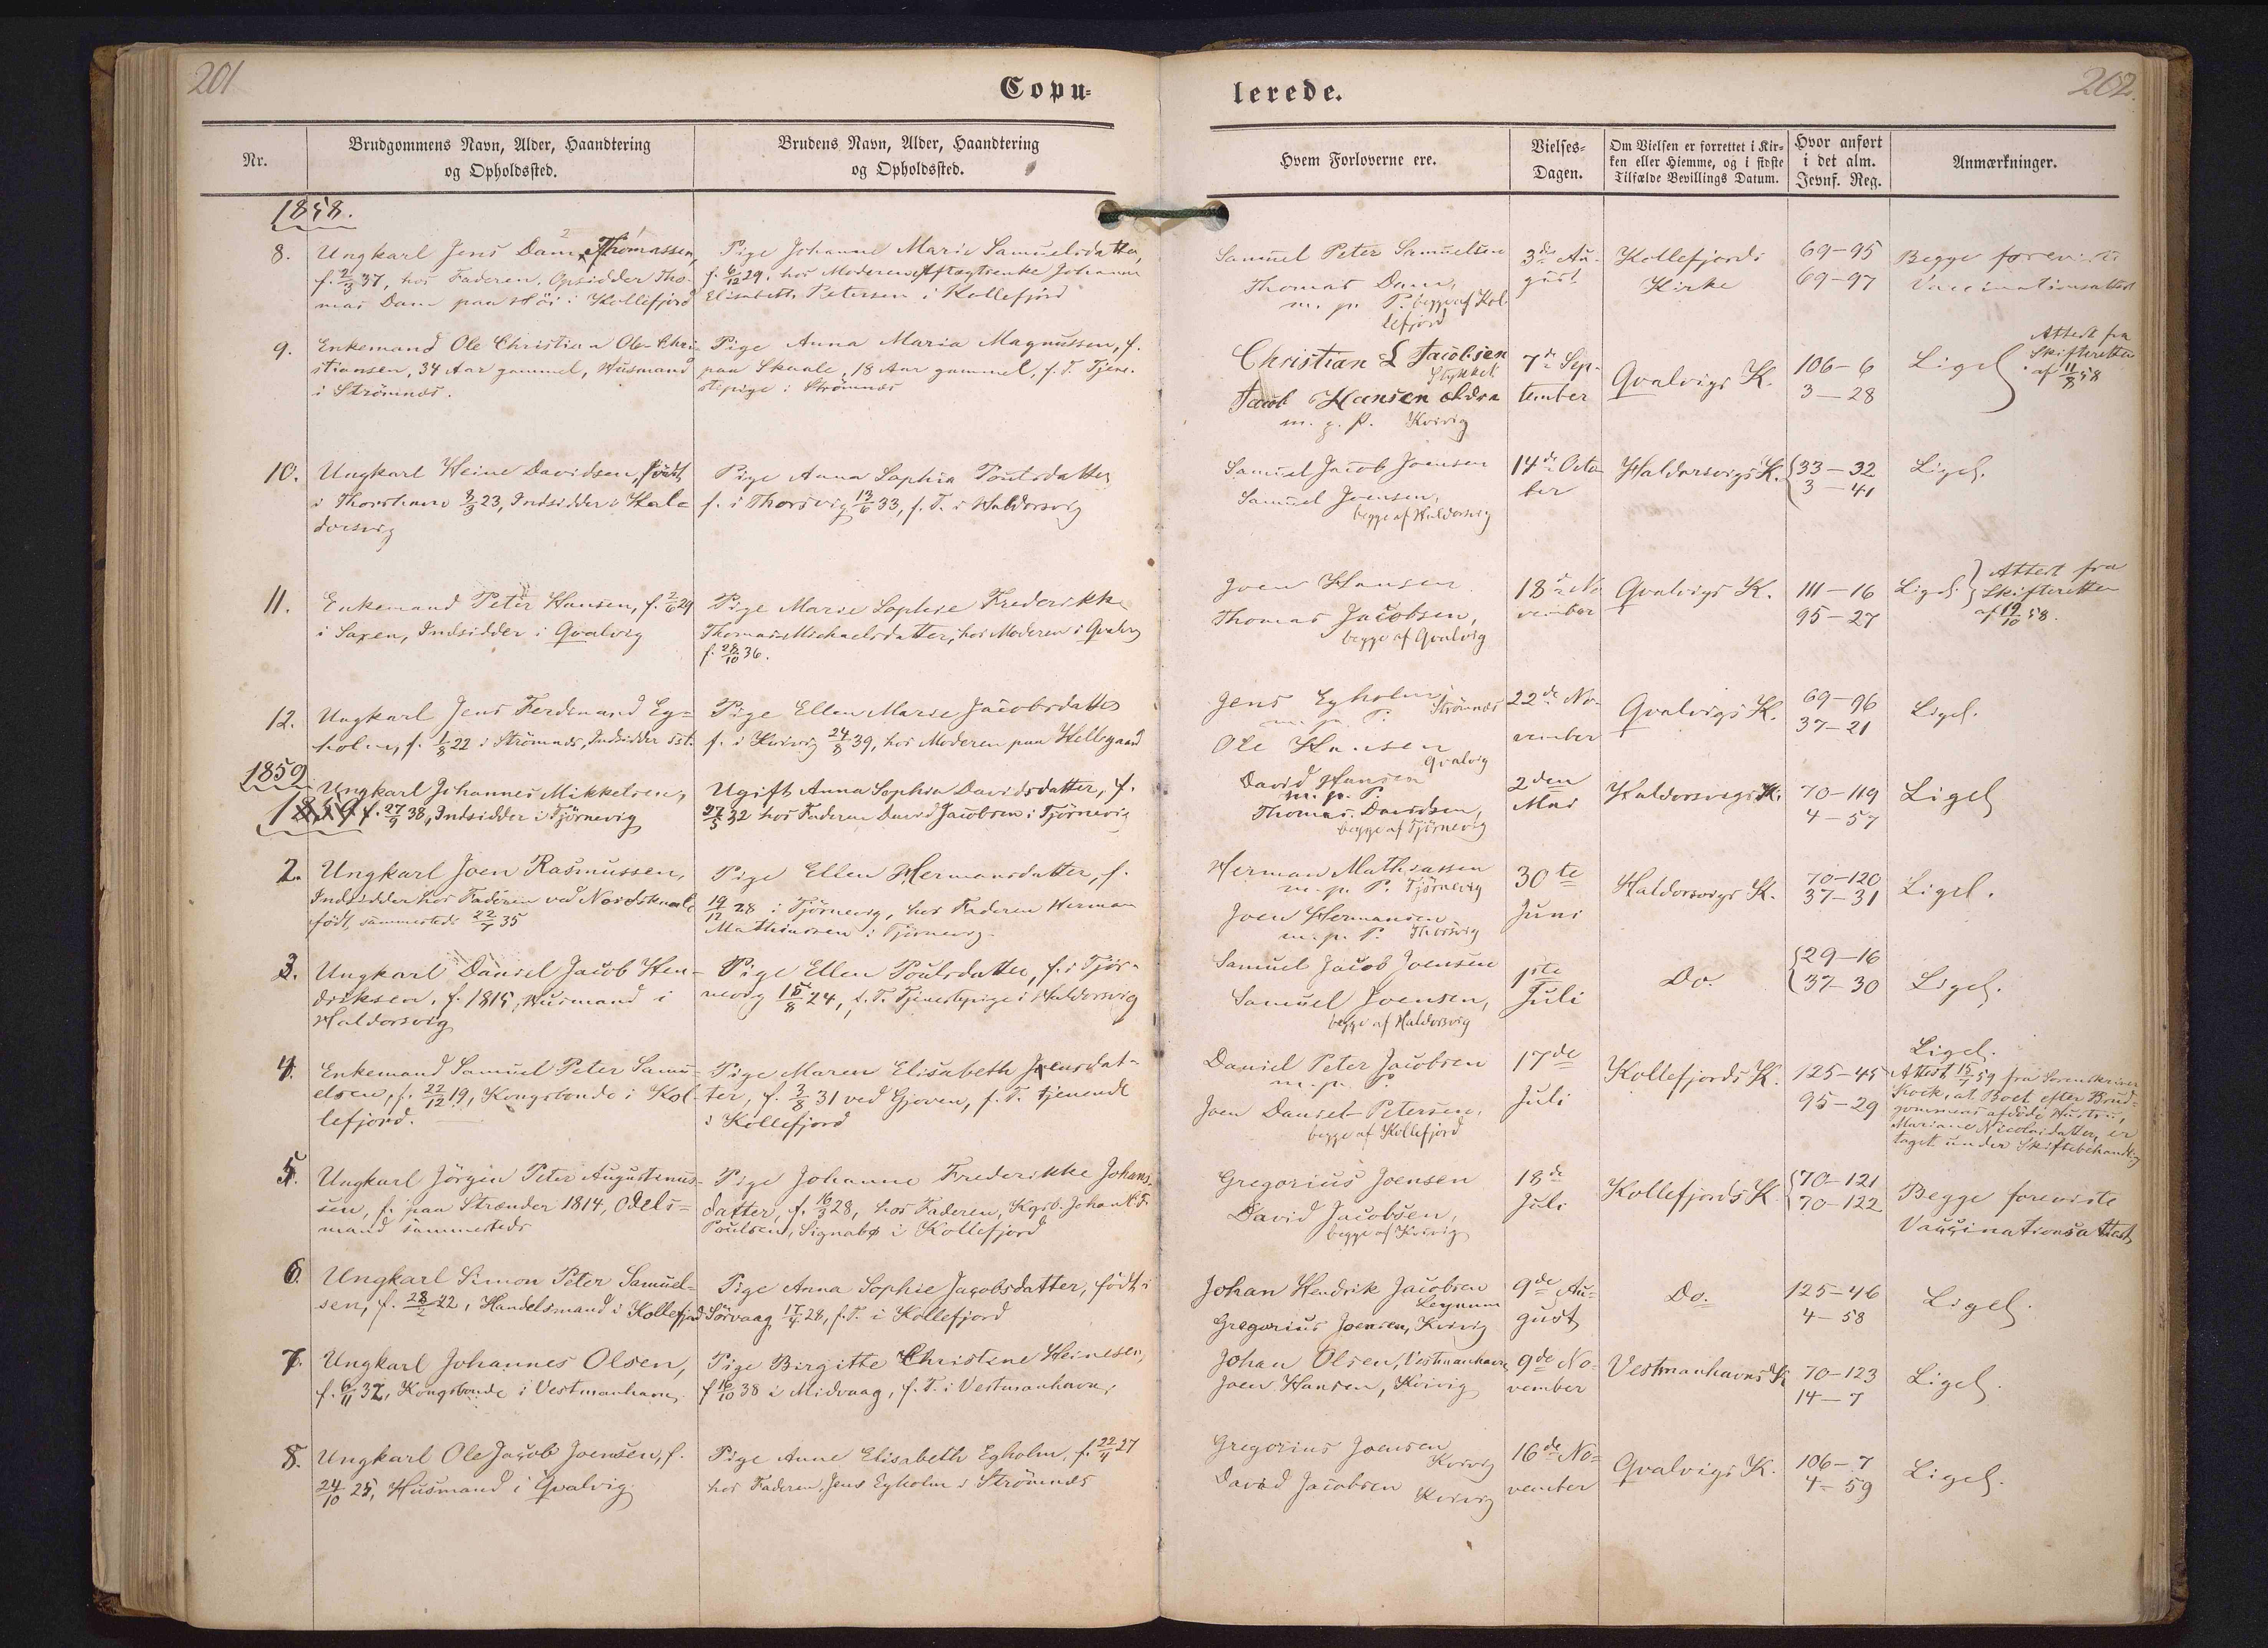 201
Copu-
lerede.
202.
Nr.
Brudgommens Navn, Alder, Haandtering
og Opholdssted.
Brudens Navn, Alder, Haandtering
og Opholdssted.
Hvem Forloverne ere.
Vielses-
Dagen.
Om Vielsen er forrettet i Kir-
ken eller Hiemme, og i sidste
Tilfælde Bevillings Datum.
Hvor anført
i det alm.
Jevnf. Reg.
Anmærkninger.
1858.
8.
Ungkarl Jens Dam Thomassen,
f. 2/3 37, hos Faderen, Opsidder Tho-
mas Dam paa i Kollefjord
Pige Johanne Marie Samuelsdatter,
f. 6/12 29, hos Moderen, Aftægtsenke Johanne
Elisabeth Petersen i Kollefjord
Samuel Peter Samuelsen
Thomas Dam,
m. p. P. begge af Kol-
lefjord
3de Au-
gust
Kollefjords
Kirke
69-95
69-97
Begge foreviste
Vaccinationsattest
9.
Enkemand Ole Christian Ole-Chri-
stiansen, 34 Aar gammel, Husmand
i Strömnæs.
Pige Anna Maria Magnussen, f.
paa Skaale, 18 Aar gammel, f. T. Tjene-
stepige i Strömnæs
Christian L Jacobsen
Stykket
Jacob Hansen ældre
m. p. P. Kvivig
7de Sep-
tember
Qvalvigs K.
106-6
3-28
Ligel.
Attest fra
Skifteretten
af 11/8 58
10.
Ungkarl Heine Davidsen, født
i 8/3 23, Indsidder i Hal-
dorsvig
Pige Anna Sophia Poulsdatter
f. i Thorsvig 13/6 33, f. T. i Haldorsvig
Samuel Jacob Joensen
Samuel Joensen,
begge af Haldorsvig
14de Octo-
ber
Haldorsvigs K.
33-32
3-41
Ligel.
11.
Enkemand Peter Hansen, f. 2/6 29
i Saxen, Indsidder i Qvalvig
Pige Marie Sophie Frederikke
Thomas Michaelsdatter, hos Moderen i Qvalvig
f. 28/10 36.
Joen Hansen
Thomas Jacobsen,
begge af Qvalvig
18de No-
vember
Qvalvigs K.
111-16
95-27
Ligel.
Attest fra
Skifteretten
af 19/10 58.
12.
Ungkarl Jens Ferdinand Eg-
holm, f. 1/8 22 i Strömnæs, Indsidder sst.
Pige Ellen Marie Jacobsdatter
f. i Kvivig 24/8 39, hos Moderen paa Hellegaard
Jens Egholm,
m. p. P. Strömnæs
Ole Hansen
Qvalvig
22de No-
vember
Qvalvigs K.
69-96
37-21
Ligel.
1859
1859
Ungkarl Johannes Mikkelsen,
f. 27/9 38, Indsidder i Tjörnevig
Ugift Anna Sophia Davidsdatter, f.
27/5 32 hos Faderen David Jacobsen i Tjörnevig
David Hansen
m. p. P.
Thomas Davidsen,
begge af Tjörnevig
2den
Mai
Haldorsvigs K.
70-119
4-57
Ligel
2.
Ungkarl Joen Rasmussen,
Indsidder hos Faderen ved Nordskaale
født sammesteds 22/7 35
Pige Ellen Hermansdatter, f.
19/12 28 i Tjörnevig, hos Faderen Herman
Mathiassen i Tjörnevig.
Herman Mathiassen
m. p. P. Tjörnevig
Joen Hermansen
m. p. P. Thorsvig
30te
Juni
Haldorsvigs K.
70-120
37-31
Ligel.
3.
Ungkarl Daniel Jacob Hen-
driksen, f. 1815, Husmand i
Haldorsvig
Pige Ellen Poulsdatter, f. i Tjör-
nevig 15/8 24, f. T. Tjenestepige i Haldorsvig
Samuel Jacob Joensen
Samuel Joensen,
begge af Haldorsvig
1ste
Juli
Do.
29-16
37-30
Ligel.
4.
Enkemand Samuel Peter Samu-
elsen, f. 22/12 19, Kongsbonde i Kol-
lefjord.
Pige Maren Elisabeth Joensdat-
ter, f. 3/8 31 ved Gjoven, f. T. tjenende
i Kollefjord
Daniel Peter Jacobsen
m. p. P.
Joen Daniel Petersen,
begge af Kollefjord
17de
Juli
Kollefjords K.
125-45
95-29
Ligel.
Attest 15/7 59 fra Sorenskriver
at Boet efter Brud-
gommens afdöde Hustru,
Mariane Nicolaidatter, er
taget under Skiftebehandling
5.
Ungkarl Jörgen Peter Augustinus-
sen, f. paa Strænder 1814, Odels-
mand sammesteds
Pige Johanne Frederikke Johans-
datter, f. 16/3 28, hos Faderen, Kgsb. Johan
Poulsen, Signabø i Kollefjord
Gregorius Joensen
David Jacobsen,
begge af Kvivig
18de
Juli
Kollefjords K
70-121
70-122
Begge foreviste
Vaccinationsattest
6.
Ungkarl Simon Peter Samuel-
sen, f. 28/2 22, Handelsmand i Kollefjord
Pige Anna Sophie Jacobsdatter, født i
Sörvaag 17/4 28, f. T. i Kollefjord
Johan Hendrik Jacobsen
Leynum
Gregorius Joensen, Kvivig
9de Au-
gust
Do.
125-46
4-58
Ligel.
7.
Ungkarl Johannes Olsen,
f. 6/11 32, Kongsbonde i Vestmanhavn
Pige Birgitte Christine Heinesen,
f 16/10 38 i Midvaag, f. T. i Vestmanhavn,
Johan Olsen, Vestmanhavn
Joen Hansen, Kvivig
9de No-
vember
Vestmanhavns K
70-123
14-7
Ligel.
8.
Ungkarl Ole Jacob Joensen, f.
24/10 25, Husmand i Qvalvig
Pige Anne Elisabeth Egholm, f. 22/4 27
hos Faderen, Jens Egholm i Strömnæs
Gregorius Joensen
Kvivig
David Jacobsen
Kvivig
16de No-
vember
Qvalvigs K.
106-7
4-59
Ligel.